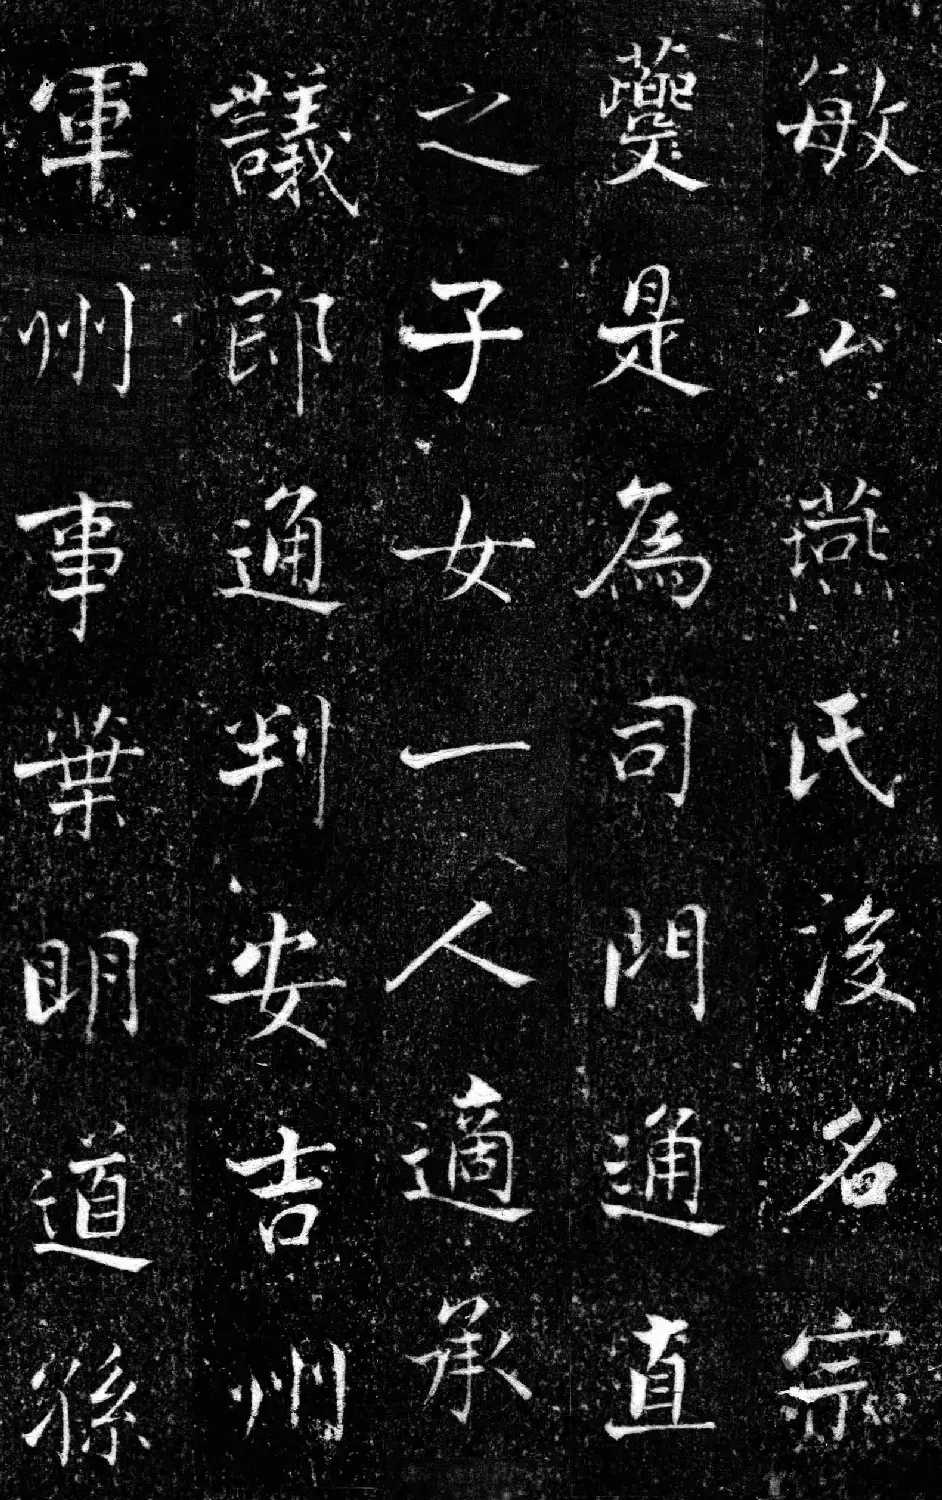 敏公燕氏後名宗
蘷是為司門通直
之子女一人適承
議郎通判安吉州
軍州事葉明道孫